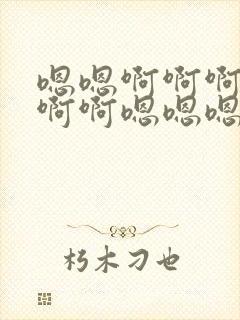 嗯嗯啊啊啊
啊啊嗯嗯嗯
朽木刁也